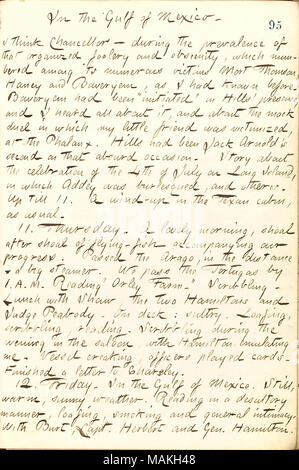 In the Gulf of Mexico.
95
I think Chancellor — during the prevalence of
that organized foolery and obscenity, which num-
bered among its numerous victims Mort Thomson,
Haney and Baweryem, as I had known before.
Baweryem had been "initiated" in Hills' presence
and I heard all about it, and about the mock
duel in which my little friend was victimized,
at the Phalanx. Hills had been Jack Arnold's
second on that absurd occasion. Story about
the celebration of the 4th of July on Long Island,
in which Addey was burlesqued, and others.
Up till 11. A wind-up in the Texan cabin,
as usual.
11. Thursday. A lovely morning, shoal
after shoal of flying-fish accompanying our
progress. Passed the Arago, in the distance
a big steamer. We pass the Tortugas by
1 A.M. Reading "Orley Farm." Scribbling.
Lunch with Shaw, the two Hamiltons and
Judge Peabody. On deck: sultry. Loafing,
scribbling, reading. Scribbling during the
evening in the saloon, with Hamilton emulating
me. Vessel creaking, officers played cards.
Finished a letter to Chareley.
12. Friday. In the Gulf of Mexico. Still,
warm, sunny weather. Reading in a desultory
manner, loafing, smoking and general intimacy
with Burt, Capt. Herbert and Gen. Hamilton.
alamy
Image ID: MAKH48
www.alamy.com